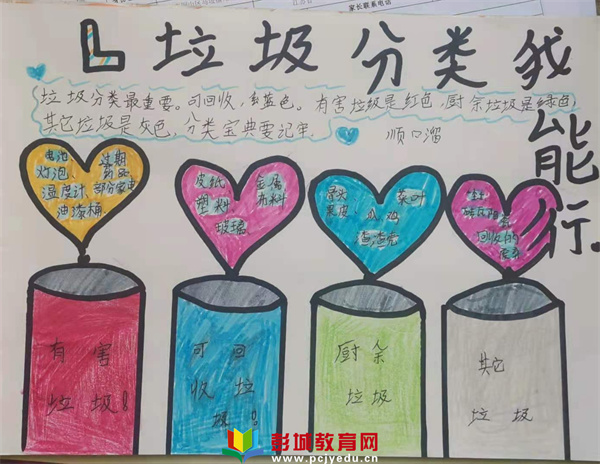 家长联系电话
垃圾分类我能行。
垃圾分类最重要。可回收,是蓝色。有害垃圾是红色,厨余垃圾是绿色,
其它垃圾是灰色,分类宝典要记牢。
顺口溜
电池 过期
灯泡、药品
温度计 部分家电
油漆桶
皮纸 金属
塑料 布料
玻璃
骨头 茶叶
果皮
渣渣壳
有害
垃圾!
可回
收垃
圾!
厨余
垃圾
其它
垃圾
彭城教育网
www.pcjyedu.cn